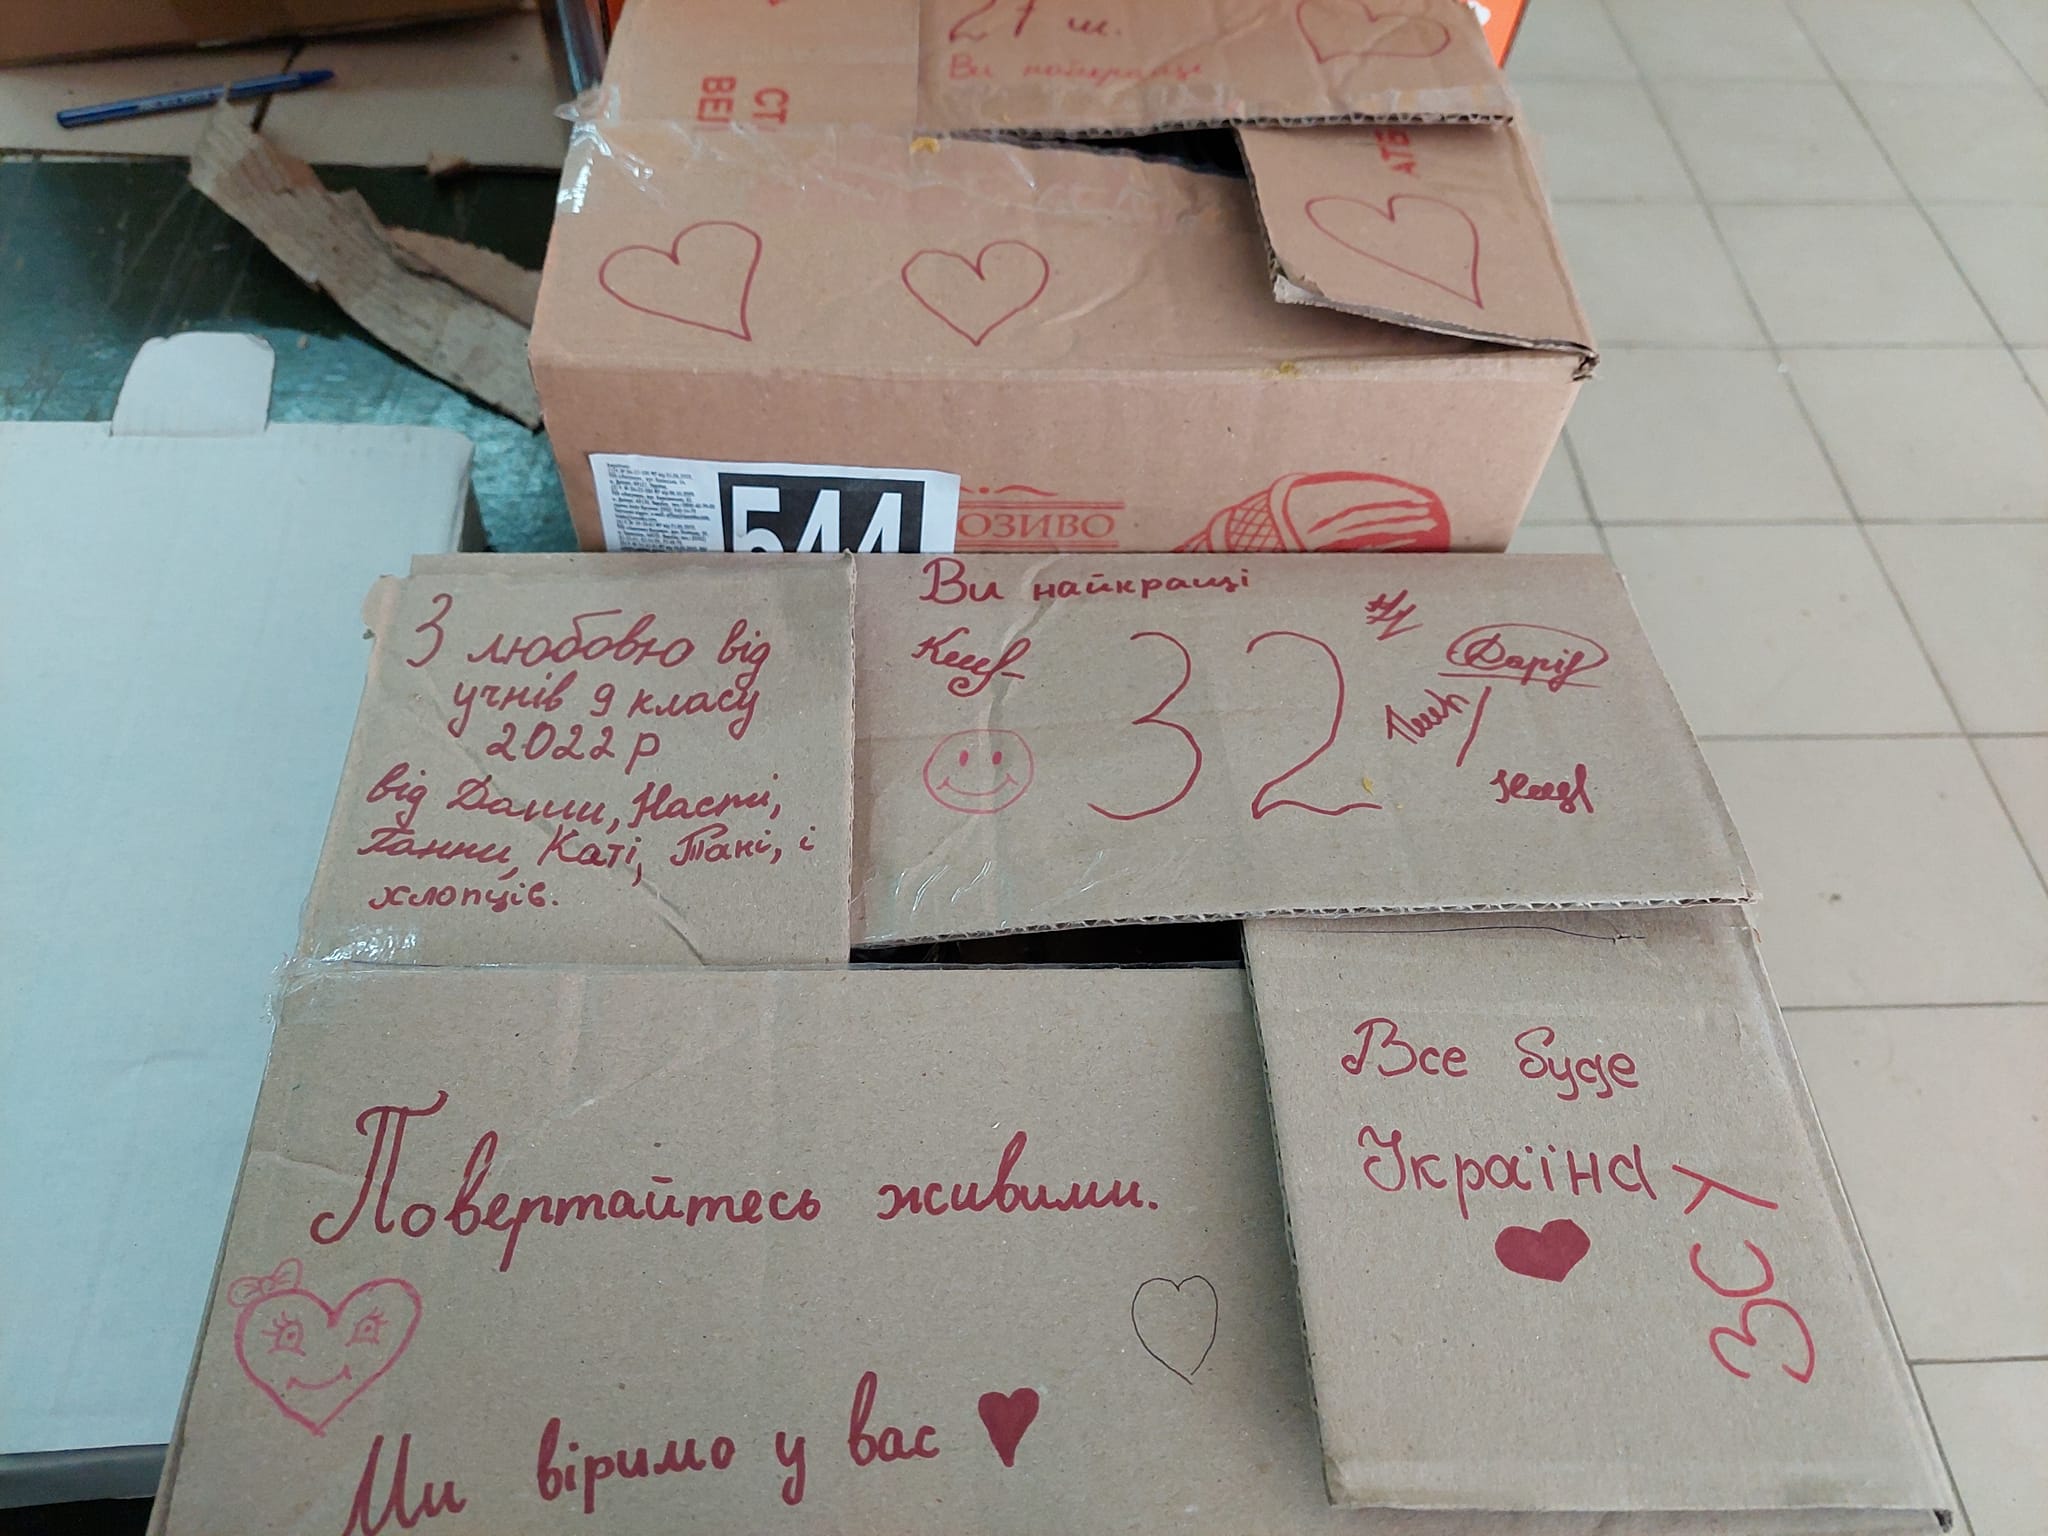 27 ш.
Ви найкращі
СТ
ВЕР
АТБ
544
ОЗИВО
Ви найкращі
32
З любовю від
учнів 9 класу
2022 р
від Даши, Насті,
Ганни, Каті, Тані, і
хлопців.
Дарія
Все буде
Україна
ЗСУ
Повертайтесь живими.
Ми віримо у вас